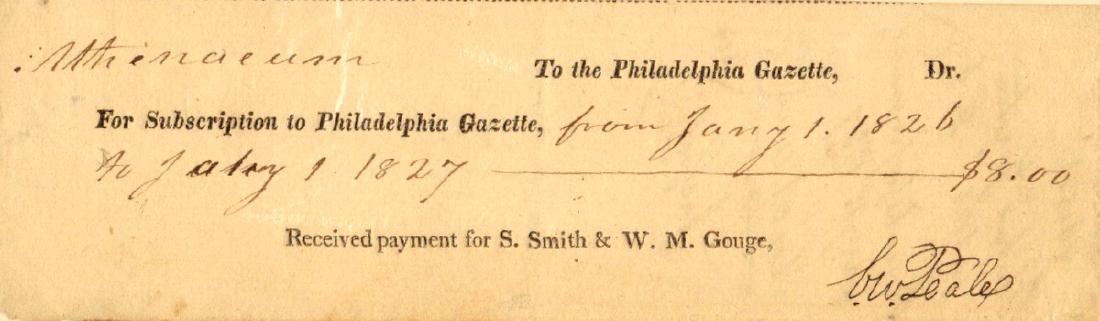 Athenaeum To the Philadelphia Gazette, Dr.
For Subscription to Philadelphia Gazette, from Jany 1. 1826
to 1 1827 $8.00
Received payment for S. Smith & W. M. Gouge,
C. W. Peale